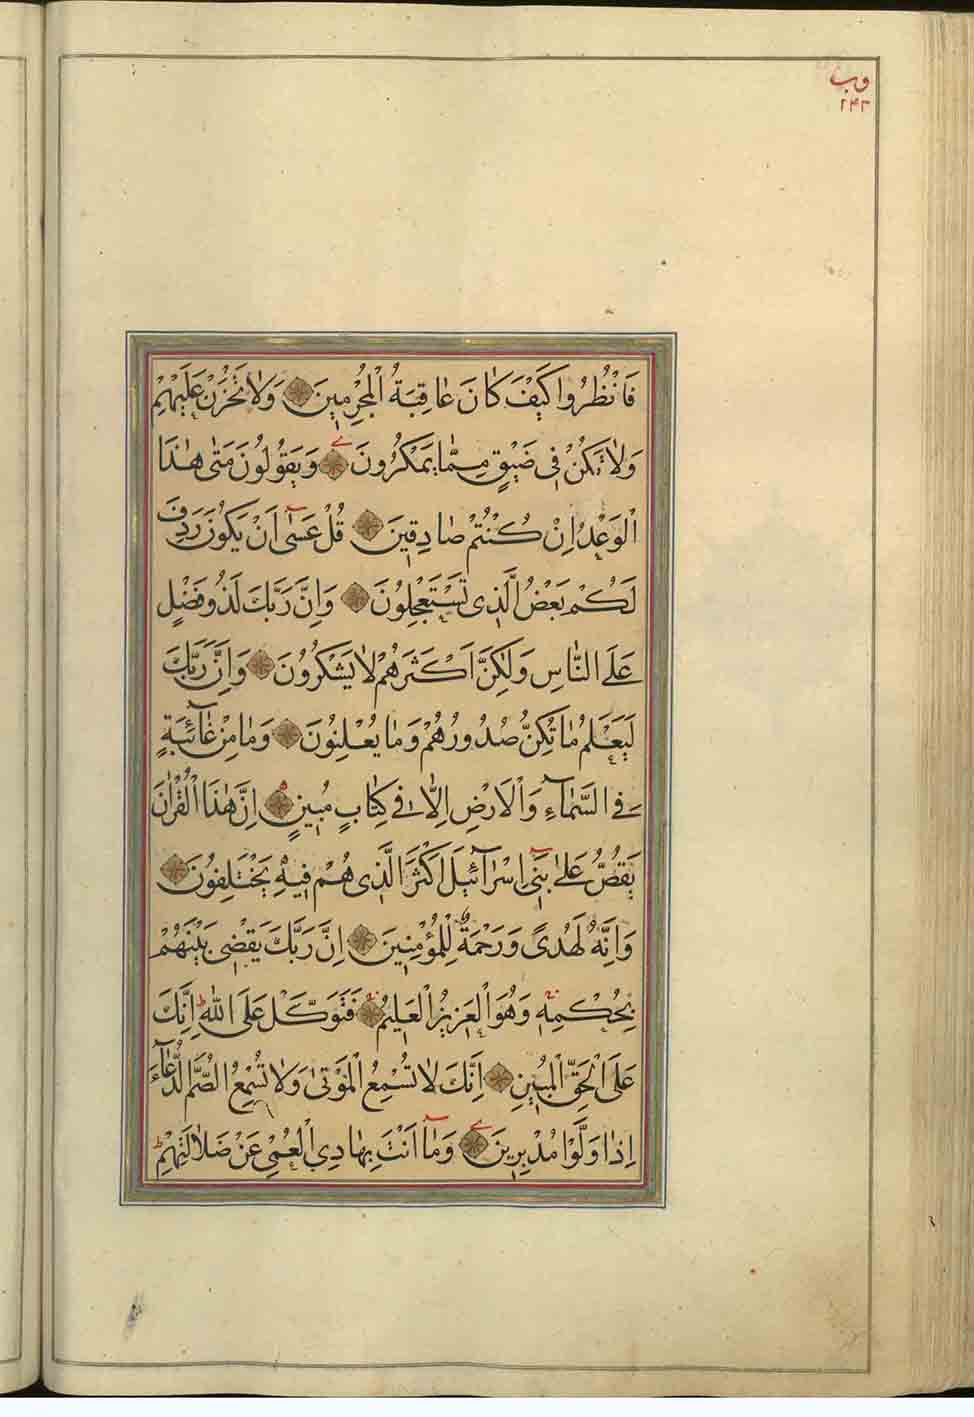 وب
٢٤٣
فَانْظُرُوا كَيْفَ كَانَ عَاقِبَةُ الْمُجْرِمِينَ وَلَا تَحْزَنْ عَلَيْهِمْ
وَلَا تَكُنْ فِي ضَيْقٍ مِمَّا يَمْكُرُونَ وَيَقُولُونَ مَتَى هٰذَا
الْوَعْدُ اِنْ كُنْتُمْ صَادِقِينَ قُلْ عَسٰٓى اَنْ يَكُونَ رَدِفَ
لَكُمْ بَعْضُ الَّذِي تَسْتَعْجِلُونَ وَاِنَّ رَبَّكَ لَذُو فَضْلٍ
عَلَى النَّاسِ وَلٰكِنَّ اَكْثَرَهُمْ لَا يَشْكُرُونَ وَاِنَّ رَبَّكَ
لَيَعْلَمُ مَا تُكِنُّ صُدُورُهُمْ وَمَا يُعْلِنُونَ وَمَا مِنْ غَآئِبَةٍ
فِي السَّمَآءِ وَالْاَرْضِ اِلَّا فِي كِتَابٍ مُبِينٍ اِنَّ هٰذَا الْقُرْاٰنَ
يَقُصُّ عَلٰى بَنِيٓ اِسْرَآئِيلَ اَكْثَرَ الَّذِي هُمْ فِيهِ يَخْتَلِفُونَ
وَاِنَّهُ لَهُدًى وَرَحْمَةٌ لِلْمُؤْمِنِينَ اِنَّ رَبَّكَ يَقْضِي بَيْنَهُمْ
بِحُكْمِهِ وَهُوَ الْعَزِيزُ الْعَلِيمُ فَتَوَكَّلْ عَلَى اللّٰهِ اِنَّكَ
عَلَى الْحَقِّ الْمُبِينِ اِنَّكَ لَا تُسْمِعُ الْمَوْتٰى وَلَا تُسْمِعُ الصُّمَّ الدُّعَآءَ
اِذَا وَلَّوْا مُدْبِرِينَ وَمَآ اَنْتَ بِهَادِي الْعُمْيِ عَنْ ضَلَالَتِهِمْ